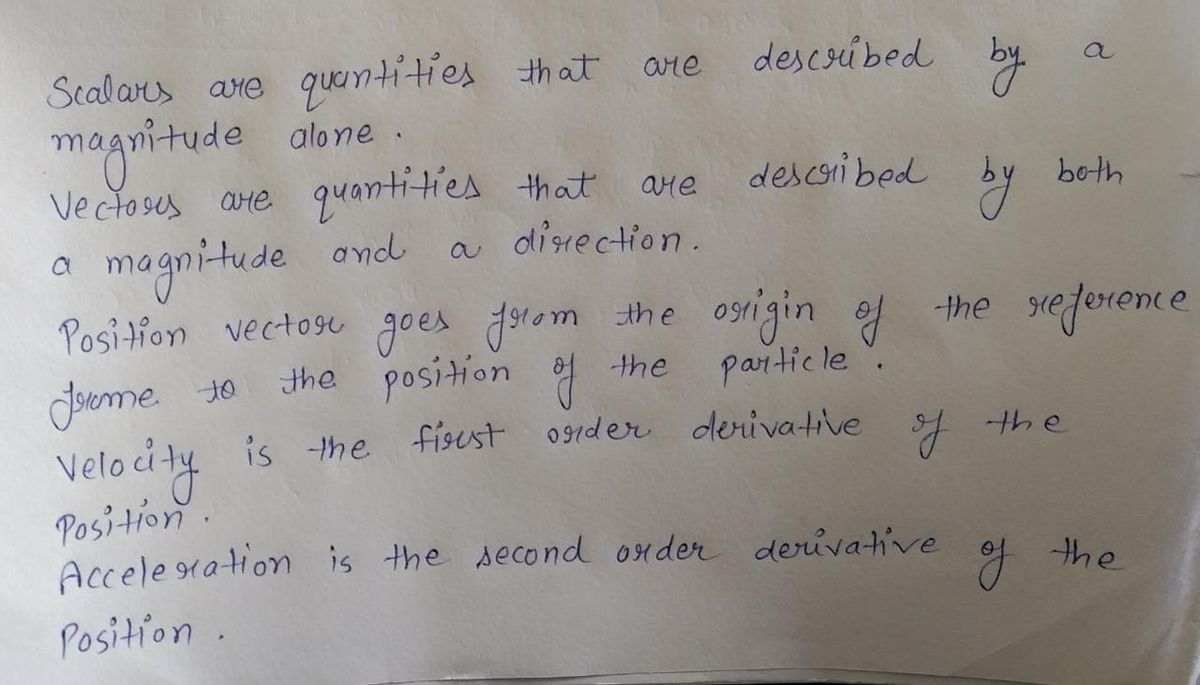 Scalars are quantities that are described by a
magnitude alone.
Vectors are quantities that are described by both
a magnitude and a direction.
Position vector goes from the origin of the reference
frame to the position of the particle.
Velocity is the first order derivative of the
Position.
Acceleration is the second order derivative of the
Position.